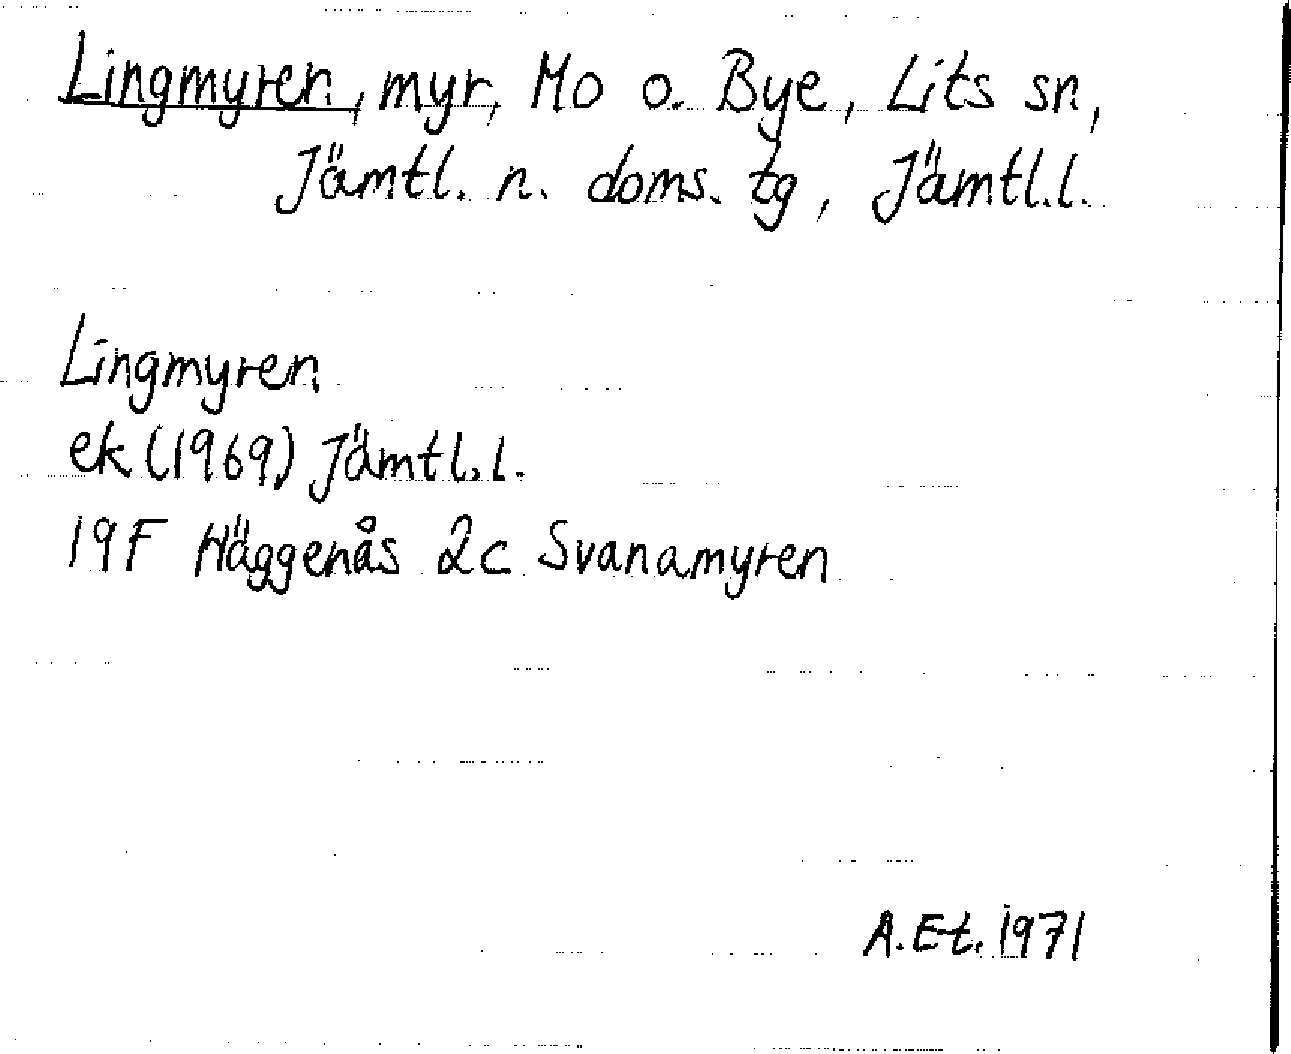 Lingmyren, myr, Mo o. Bye, Lits sn,
Jämtl. n. doms. tg, Jämtl.l.
Lingmyren
ek (1969) Jämtl.l.
19F Häggenås 2c Svanamyren
A.Et. 1971